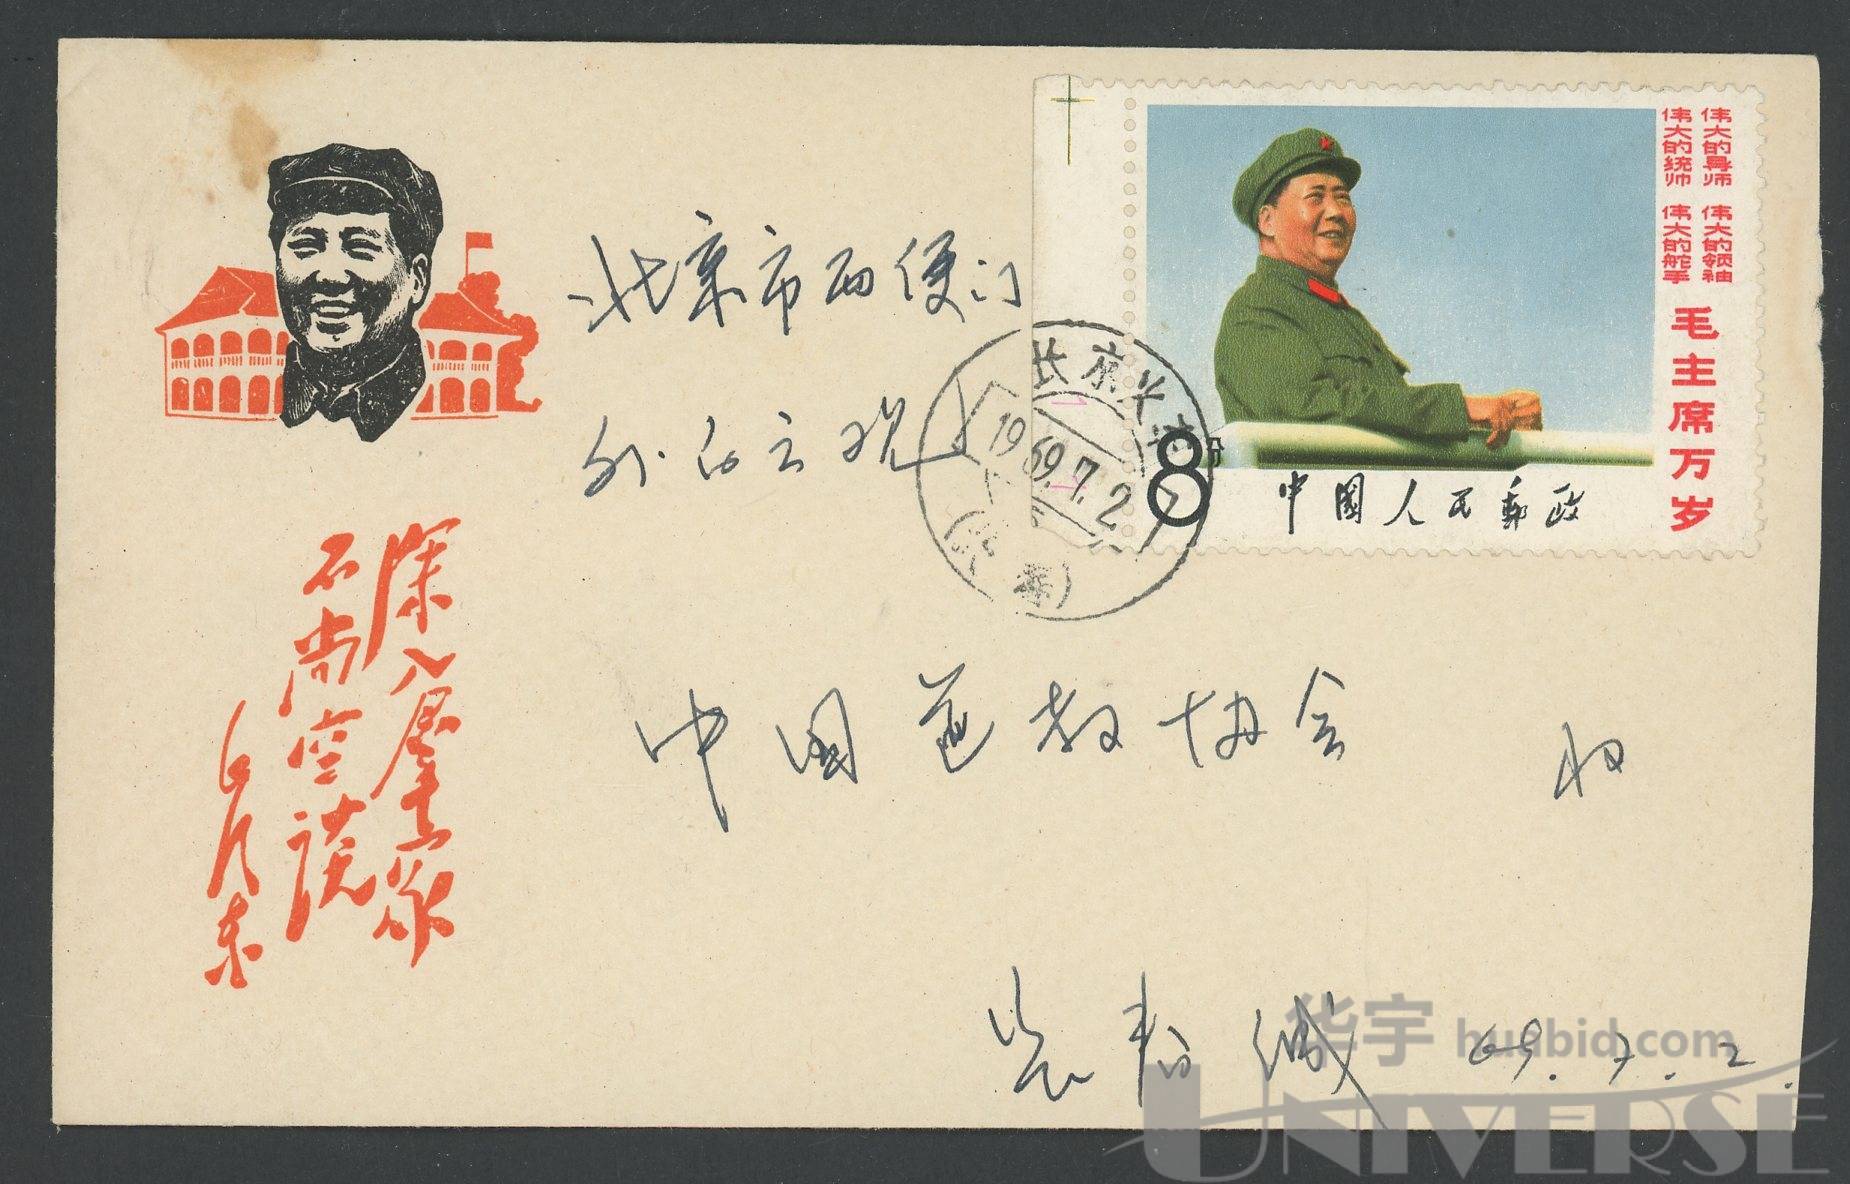 北京市西便门
外白云观
中国道教协会 收
69.7.2.
深入群众
不尚空谈
毛泽东
伟大的导师
伟大的领袖
伟大的统帅
伟大的舵手
毛主席万岁
8分
中国人民邮政
北京
1969.7.2
(北京)
华宇 huabid.com
UNIVERSE